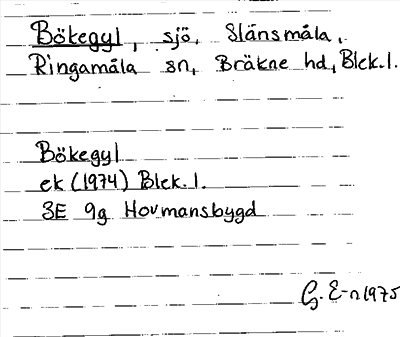 Bökegyl, sjö, Slänsmåla,
Ringamåla sn, Bräkne hd, Blek. l.
Bökegyl
ek (1974) Blek. l.
3E 9g Hovmansbygd
G. E-n 1975